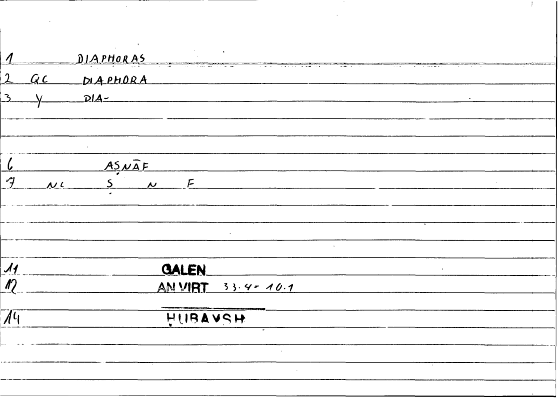 1 DIAPHORAS
2 GC DIAPHORA
3 Y DIA-
6 AṢNĀF
7 NC Ṣ N F
11 GALEN
12 AN VIRT 33.4-10.1
14 ḤUBAYSH